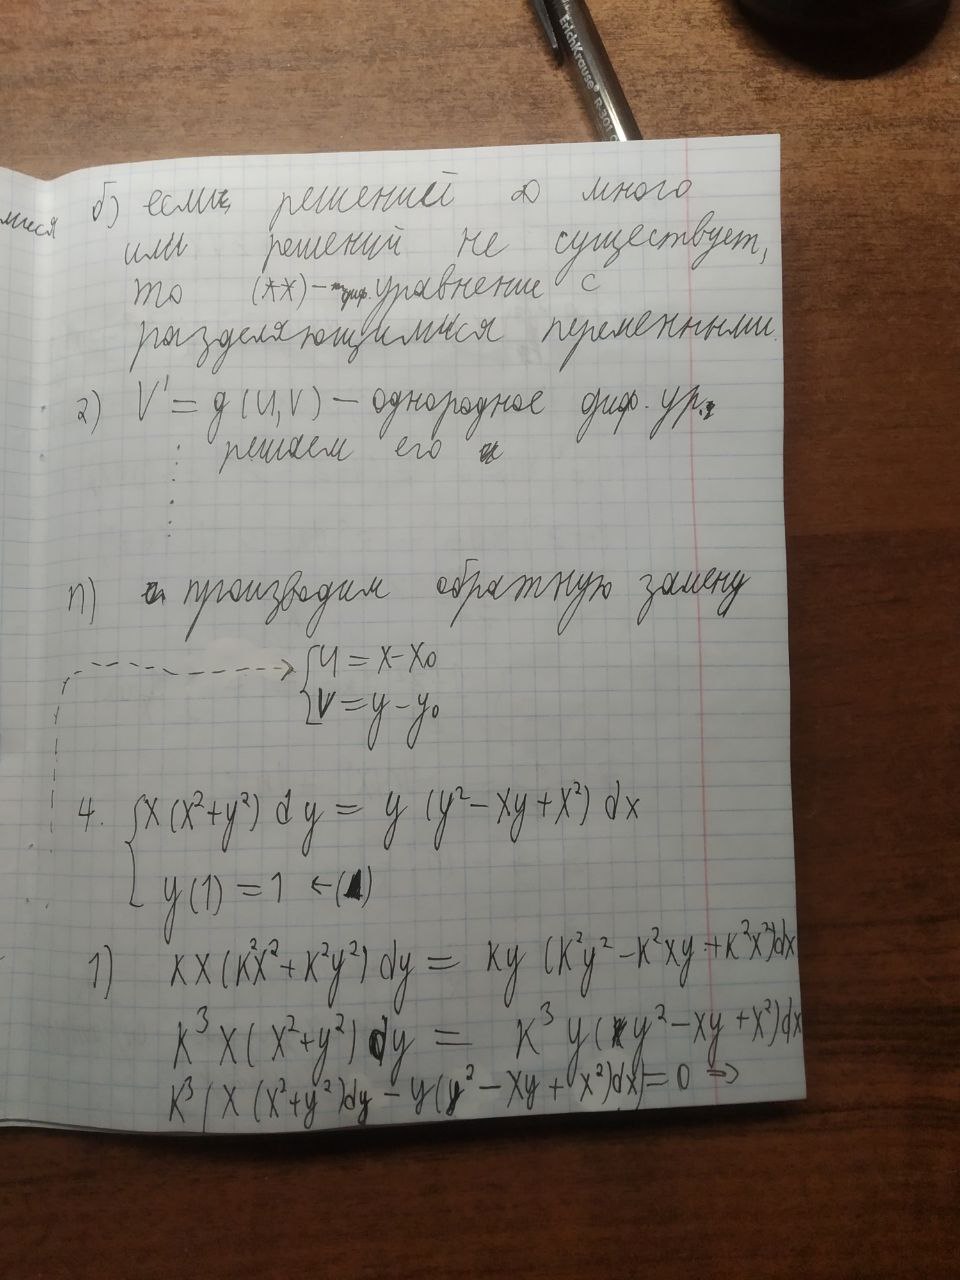 ErichKrause® R-301
мися
б) если решений ∞ много
или решений не существует,
то (**) - диф. уравнение с
разделяющимися переменными.
2) V' = g(u,v) – однородное диф. ур.
решаем его
n) производим обратную замену
{ u = x-x₀
v = y-y₀
4. { x(x²+y²) dy = y (y²-xy+x²) dx
y(1) = 1 ←(1)
1) kx(k²x²+k²y²) dy = ky (k²y²-k²xy+k²x²)dx
k³x(x²+y²) dy = k³y(y²-xy+x²)dx
k³(x(x²+y²)dy - y(y²-xy+x²)dx)=0 ⇒